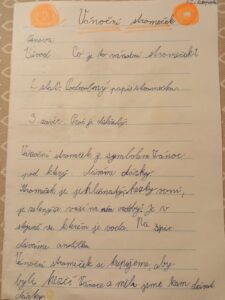 Vánoční stromeček
Osnova
Úvod Co je to vánoční stromeček?
2. stať: Podrobný popis stromečku.
3. závěr: Proč je důležitý.
Vánoční stromeček je symbolem Vánoc
pod který dáváme dárky.
Stromeček je jehličnatý, hezky voní,
je zelený a visí na něm ozdoby. Je v
stojanu ve kterém je voda. Na špic
dáváme andílka.
Vánoční stromeček se kupujeme, aby
byli hezčí Vánoce a měli jsme kam dávat
dárky.